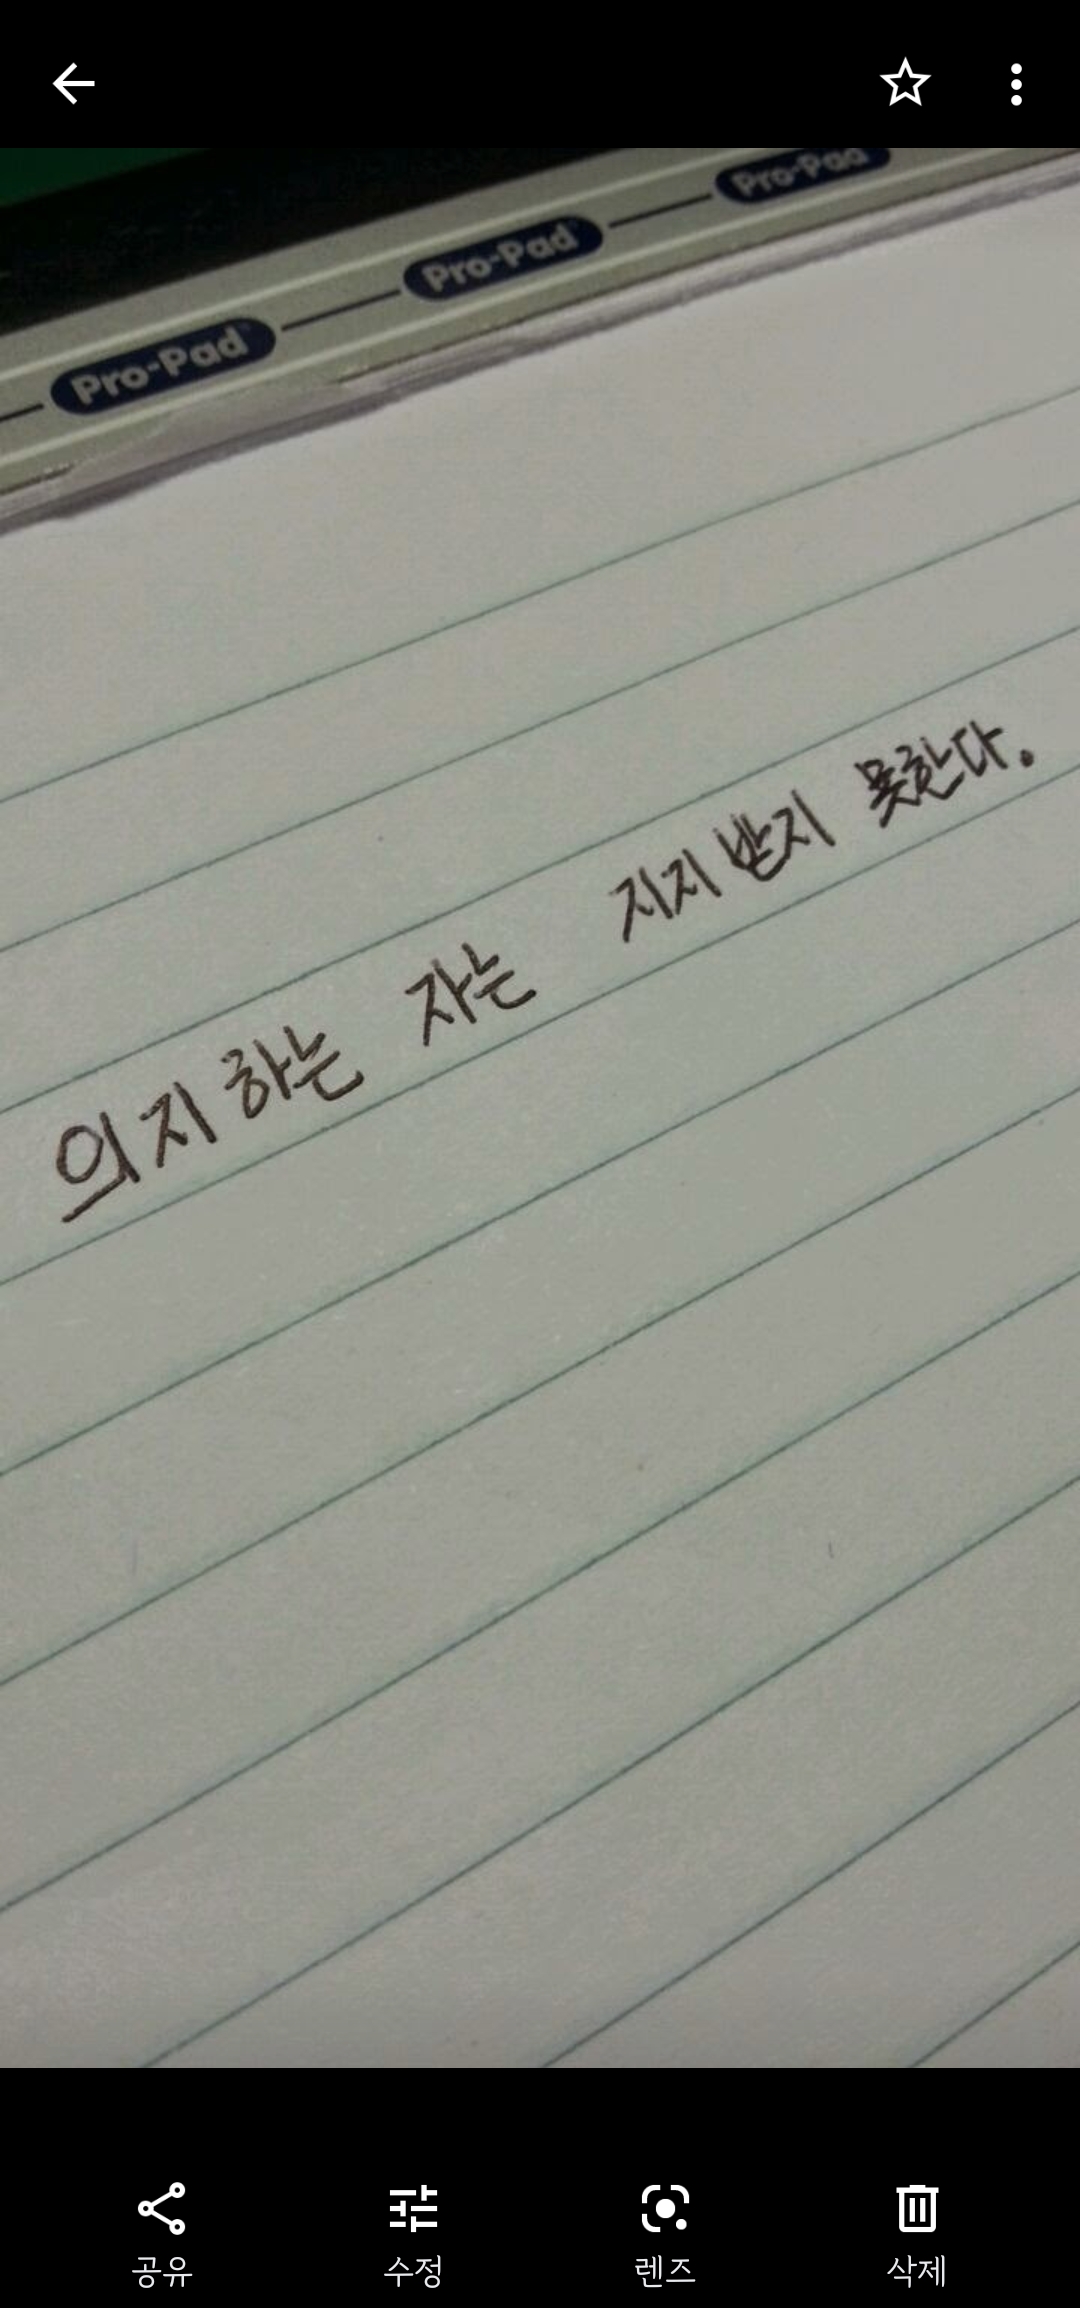 Pro-Pad Pro-Pad Pro-Pad
의지하는 자는 지지받지 못한다.
공유 수정 렌즈 삭제